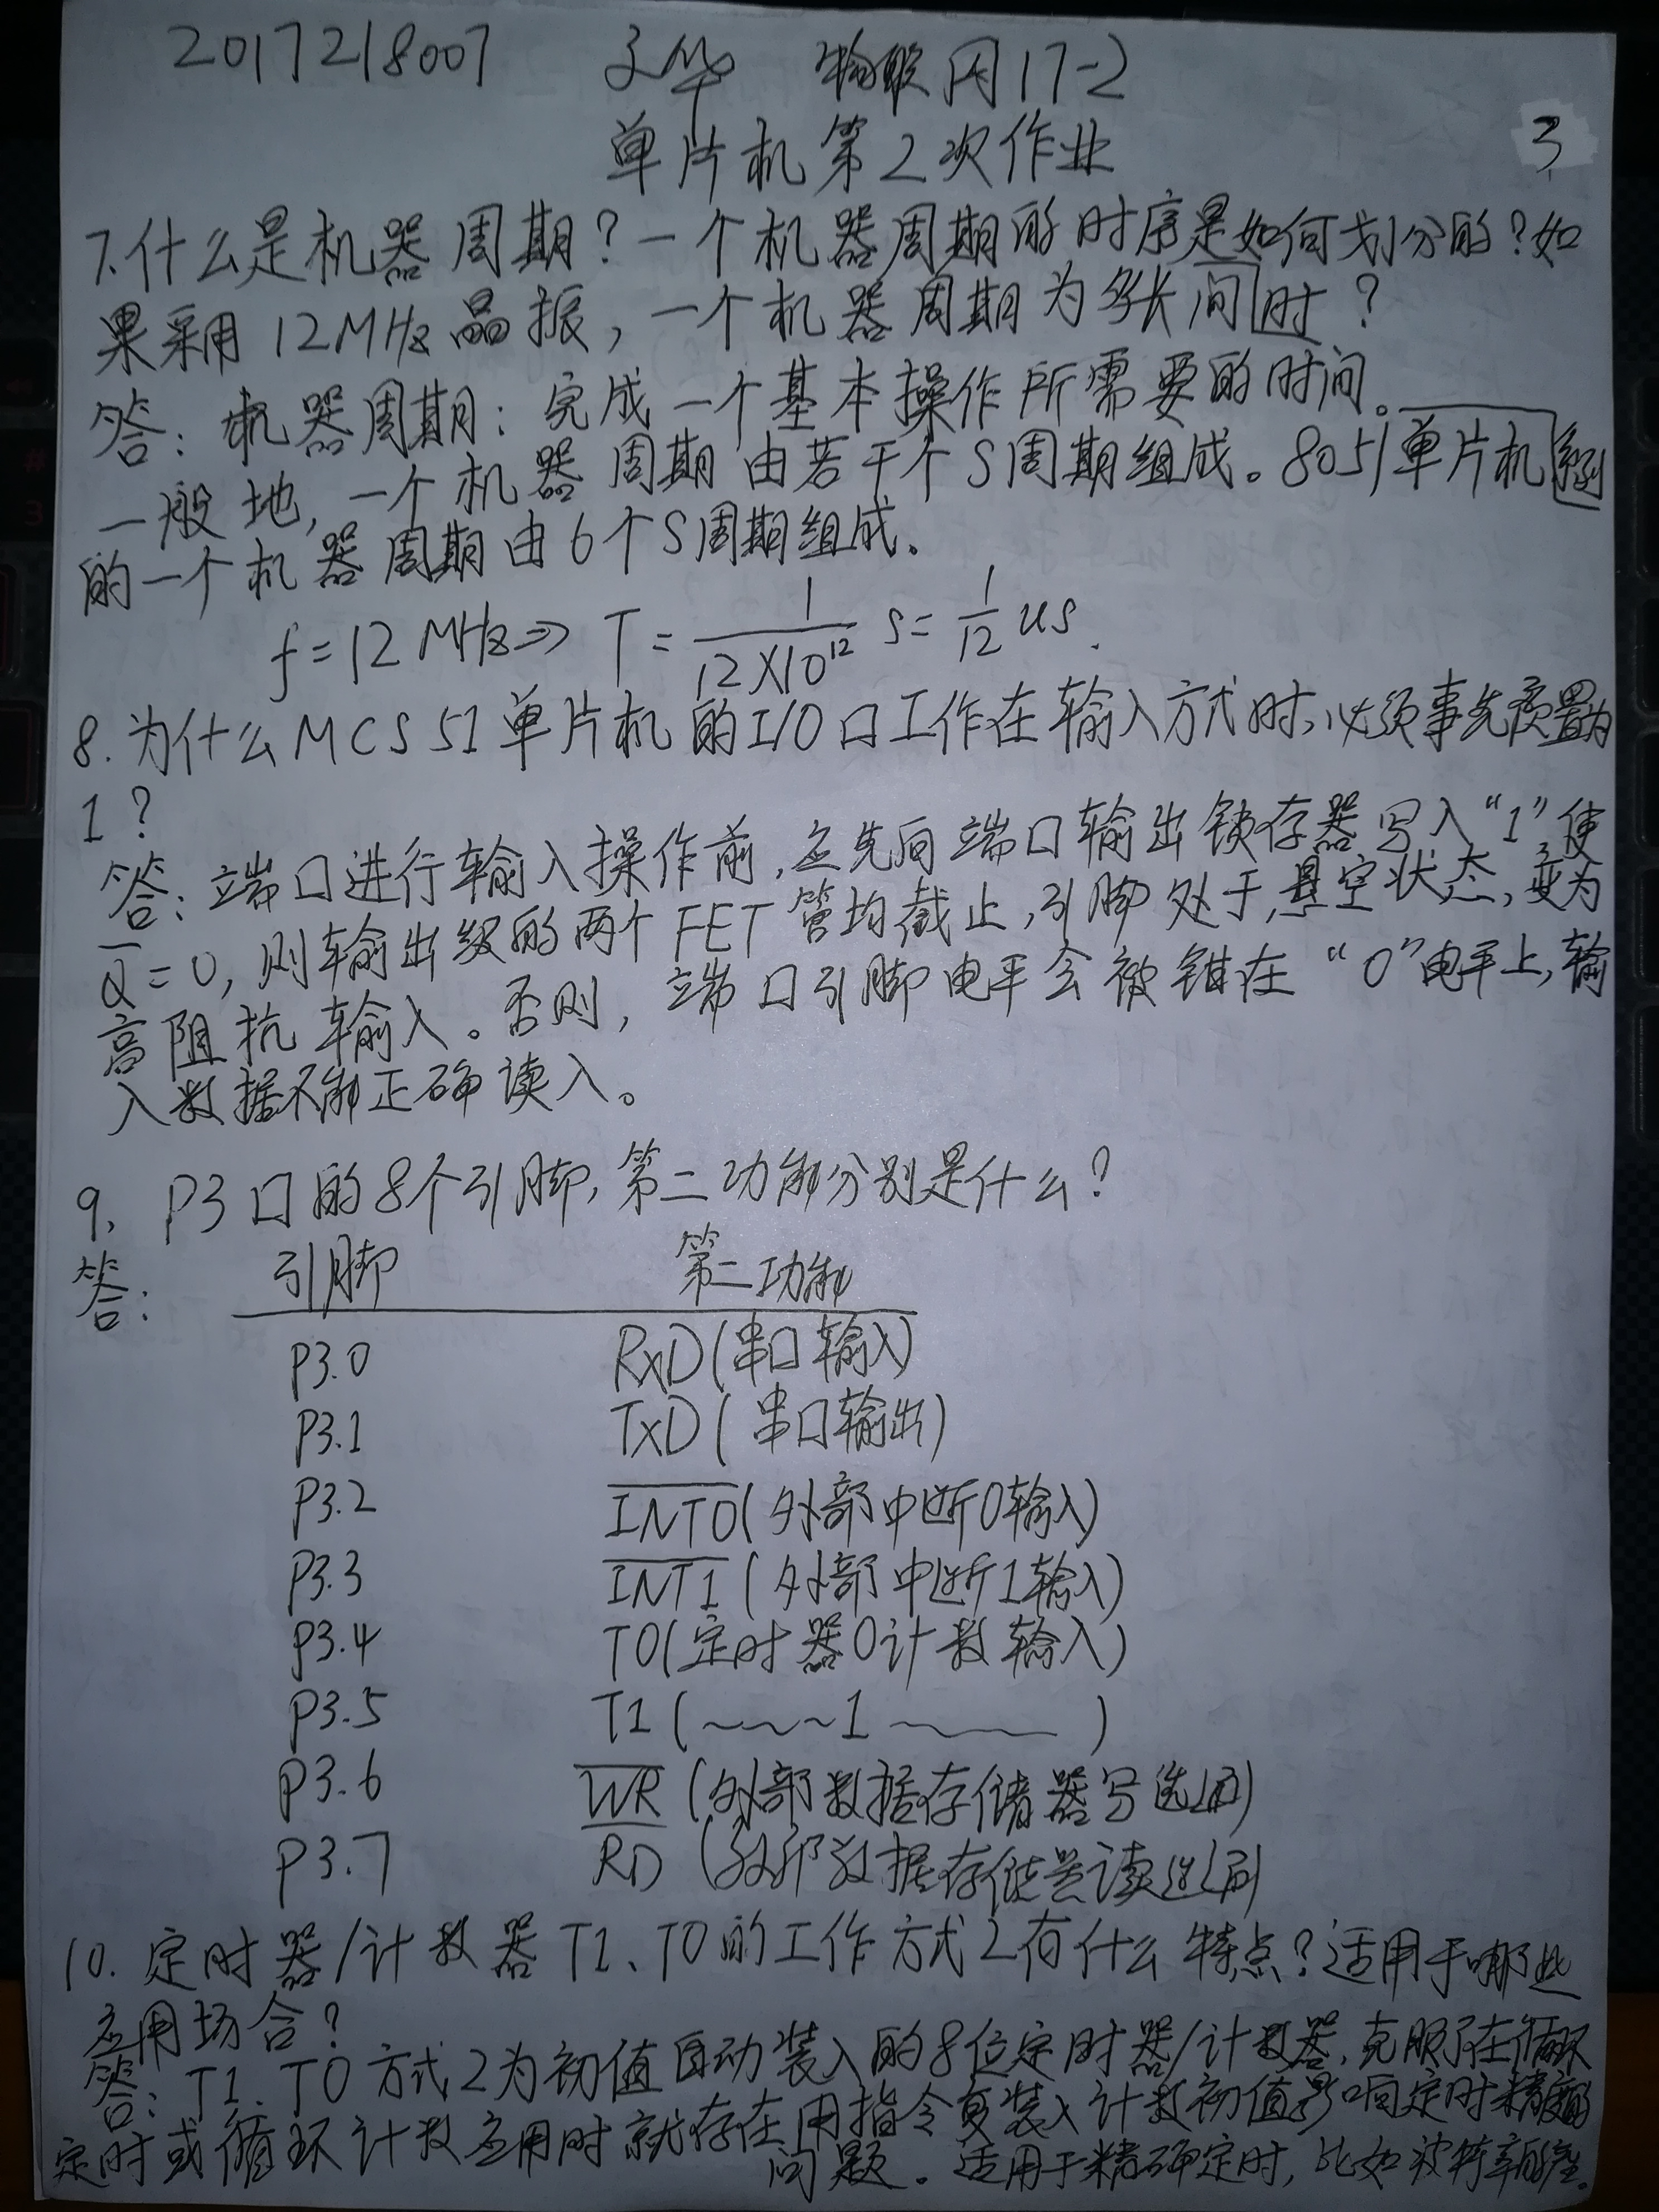 2017218007 文华 物联网17-2
单片机第2次作业
3
7.什么是机器周期？一个机器周期的时序是如何划分的？如
果采用12MHz晶振，一个机器周期为多长间时？
答：机器周期：完成一个基本操作所需要的时间。
一般地，一个机器周期由若干个S周期组成。8051单片机系列
的一个机器周期由6个S周期组成。
f=12MHz⇒ T=1/(12×10^12) s=1/12 us.
8.为什么MCS51单片机的I/O口工作在输入方式时，必须事先预置为
1？
答：端口进行输入操作前，应先向端口输出锁存器写入“1”，使
Q̅=0，则输出级的两个FET管均截止，引脚处于悬空状态，变为
高阻抗输入。否则，端口引脚电平会被钳在“0”电平上，输
入数据不能正确读入。
9. P3口的8个引脚，第二功能分别是什么？
答： 引脚 第二功能
P3.0 RxD(串口输入)
P3.1 TxD(串口输出)
P3.2 I̅N̅T̅0̅(外部中断0输入)
P3.3 I̅N̅T̅1̅(外部中断1输入)
P3.4 T0(定时器0计数输入)
P3.5 T1(~~~1~~~)
P3.6 W̅R̅(外部数据存储器写选通)
P3.7 R̅D̅(外部数据存储器读选通)
10.定时器/计数器T1、T0的工作方式2有什么特点？适用于哪些
应用场合？
答：T1、T0方式2为初值自动装入的8位定时器/计数器，克服了在循环
定时或循环计数应用时就存在用指令复装入计数初值影响定时精度的
问题。适用于精确定时，比如波特率的产生。